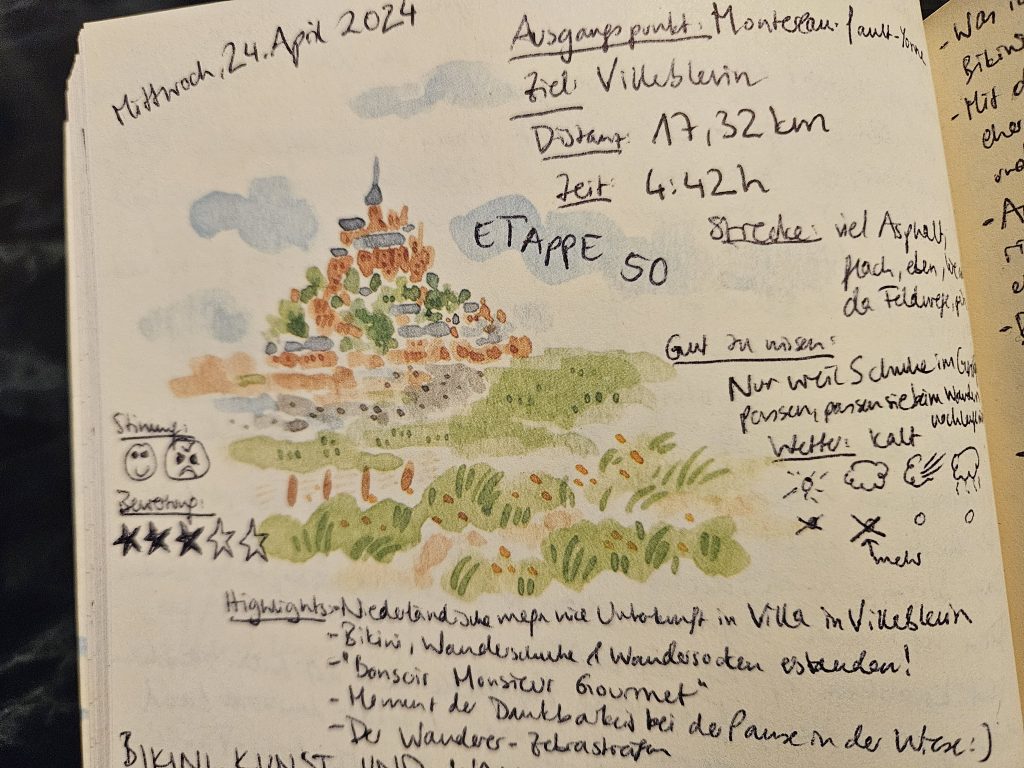 Mittwoch, 24. April 2024
Ausgangspunkt: Montereau-fault-Yonne
Ziel: Villeblevin
Distanz: 17,32 km
Zeit: 4:42h
ETAPPE 50
Strecke: viel Asphalt,
flach, eben,
da Feldwege,
Gut zu wissen:
Nur weil Schuhe im
passen, passen sie beim
Wetter: kalt
mehr
Stimmung:
Bewertung:
Highlights: - Niederländische mega nice Unterkunft in Villa in Villeblevin
- Bikini, Wanderschuhe & Wandersocken erstanden!
- "Bonsoir Monsieur Gourmet"
- Moment der Dankbarkeit bei der Pause in der Wiese :)
- Der Wanderer-Zebrastreifen
BIKINI, KUNST UND
- War
Bikini
- Mit
eher